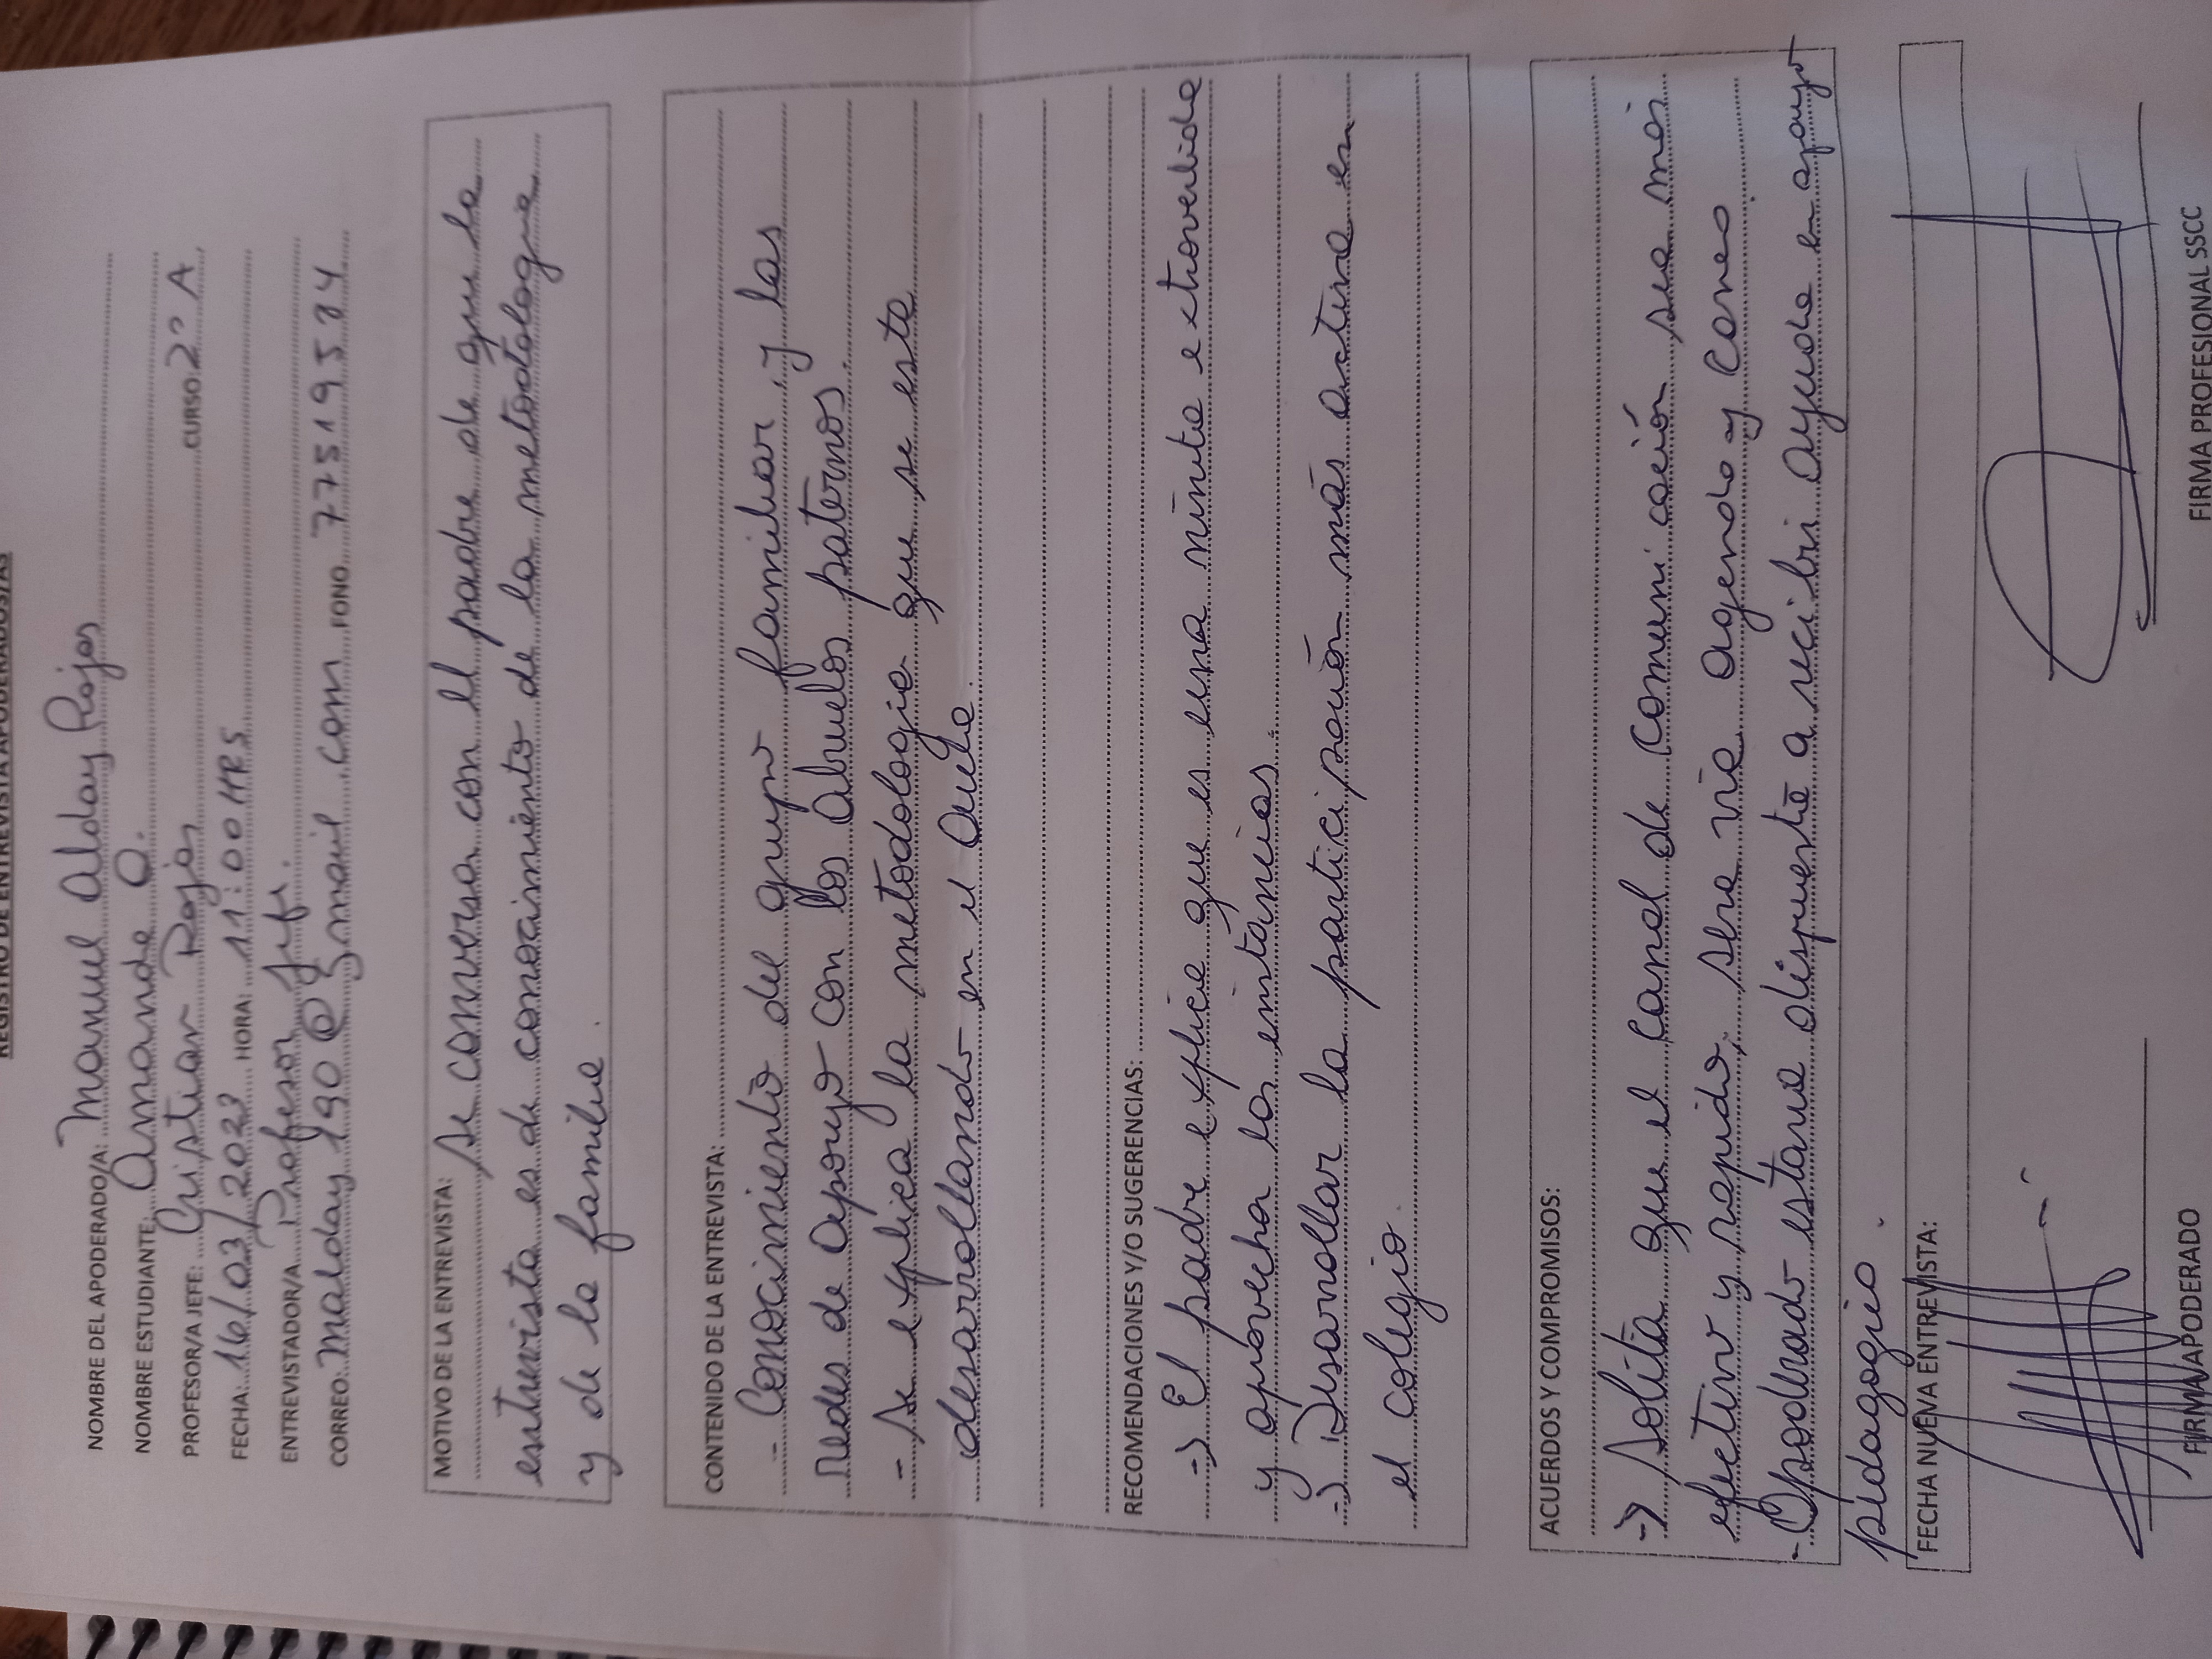 REGISTRO DE ENTREVISTA APODERADOS/AS
NOMBRE DEL APODERADO/A: Manuel Alday Rojas
NOMBRE ESTUDIANTE: Amanda A.
PROFESOR/A JEFE: Cristian Rojas CURSO 2° A
FECHA: 16/03/2023 HORA: 11:00 HRS
ENTREVISTADOR/A: Profesor Jefe.
CORREO: malday190@gmail.com FONO 77519534
MOTIVO DE LA ENTREVISTA: Se conversa con el padre de que la
entrevista es de conocimiento de la metodologia
y de la familia.
CONTENIDO DE LA ENTREVISTA:
- Conocimiento del grupo familiar, y las
redes de apoyo con los abuelos paternos.
- Se explica la metodologia que se esta
desarrollando en el aula.
RECOMENDACIONES Y/O SUGERENCIAS:
-> El padre explica que es una niñita extrovertida
y aprovecha las instancias.
-> Desarrollar la participación más activa en
el colegio.
ACUERDOS Y COMPROMISOS:
-> Solita que el canal de comunicación sea más
efectivo y rapido, sera via agenda y correo
- Apoderado estara dispuesto a recibir ayuda en apoyo
pedagogico.
FECHA NUEVA ENTREVISTA:
FIRMA APODERADO
FIRMA PROFESIONAL SSCC